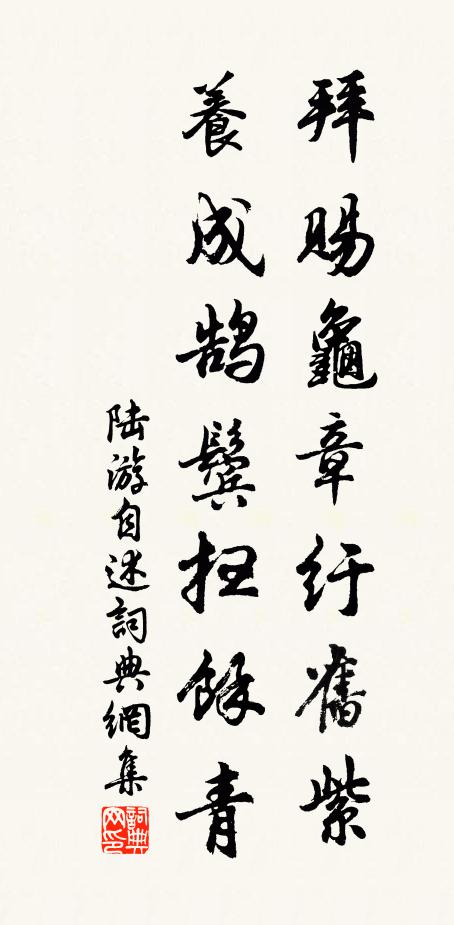 拜賜龜章紆舊紫
養成鵠鬢扫餘青
陆游自述詞典網集
詞典网印